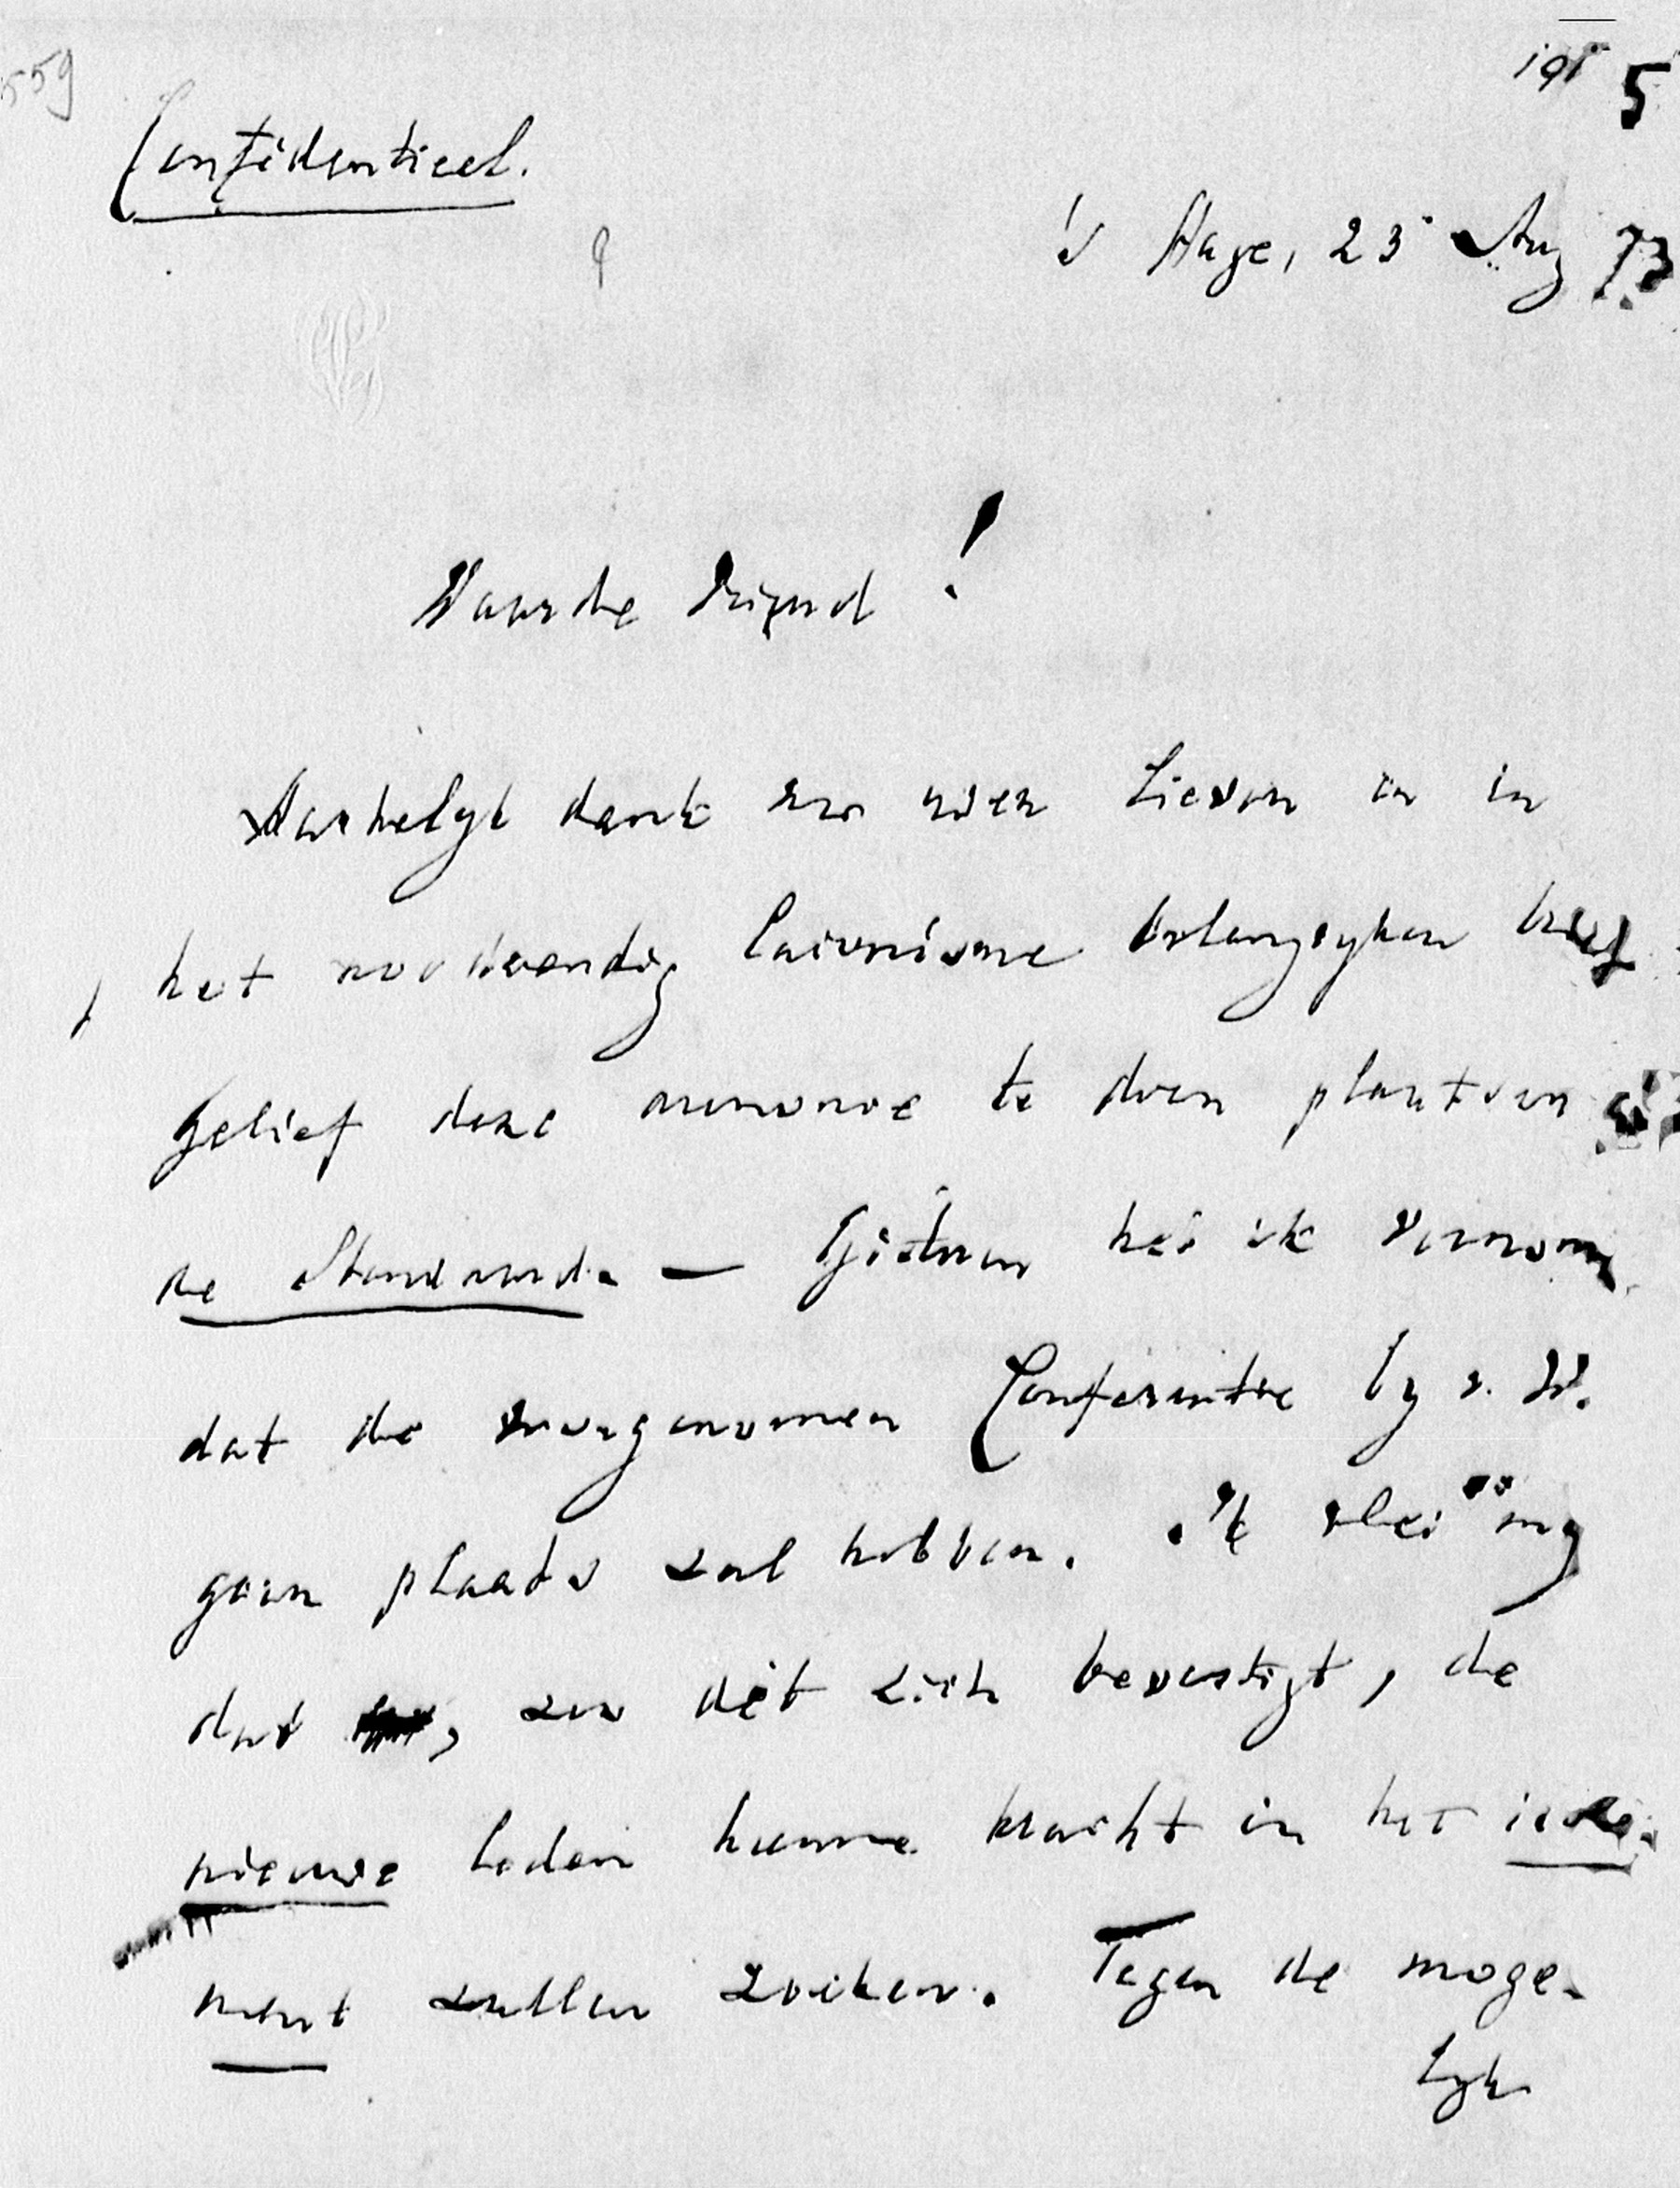 559
5
Confidentieel.
's Hage, 23 Aug 73
Waarde Vriend!
Hartelijk dank voor uwen lieven en in
het noodwendig laconisme belangrijken brief.
Gelief deze annonce te doen plaatsen in
de Standaard. — Gisteren heb ik vernomen
dat de voorgenomen Conferentie by v. W.
geen plaats zal hebben. Ik vlei my
dat, zoo dit zich bevestigt, de
nieuwe leden hunne kracht in het isole-
ment zullen zoeken. Tegen de moge-
lyk